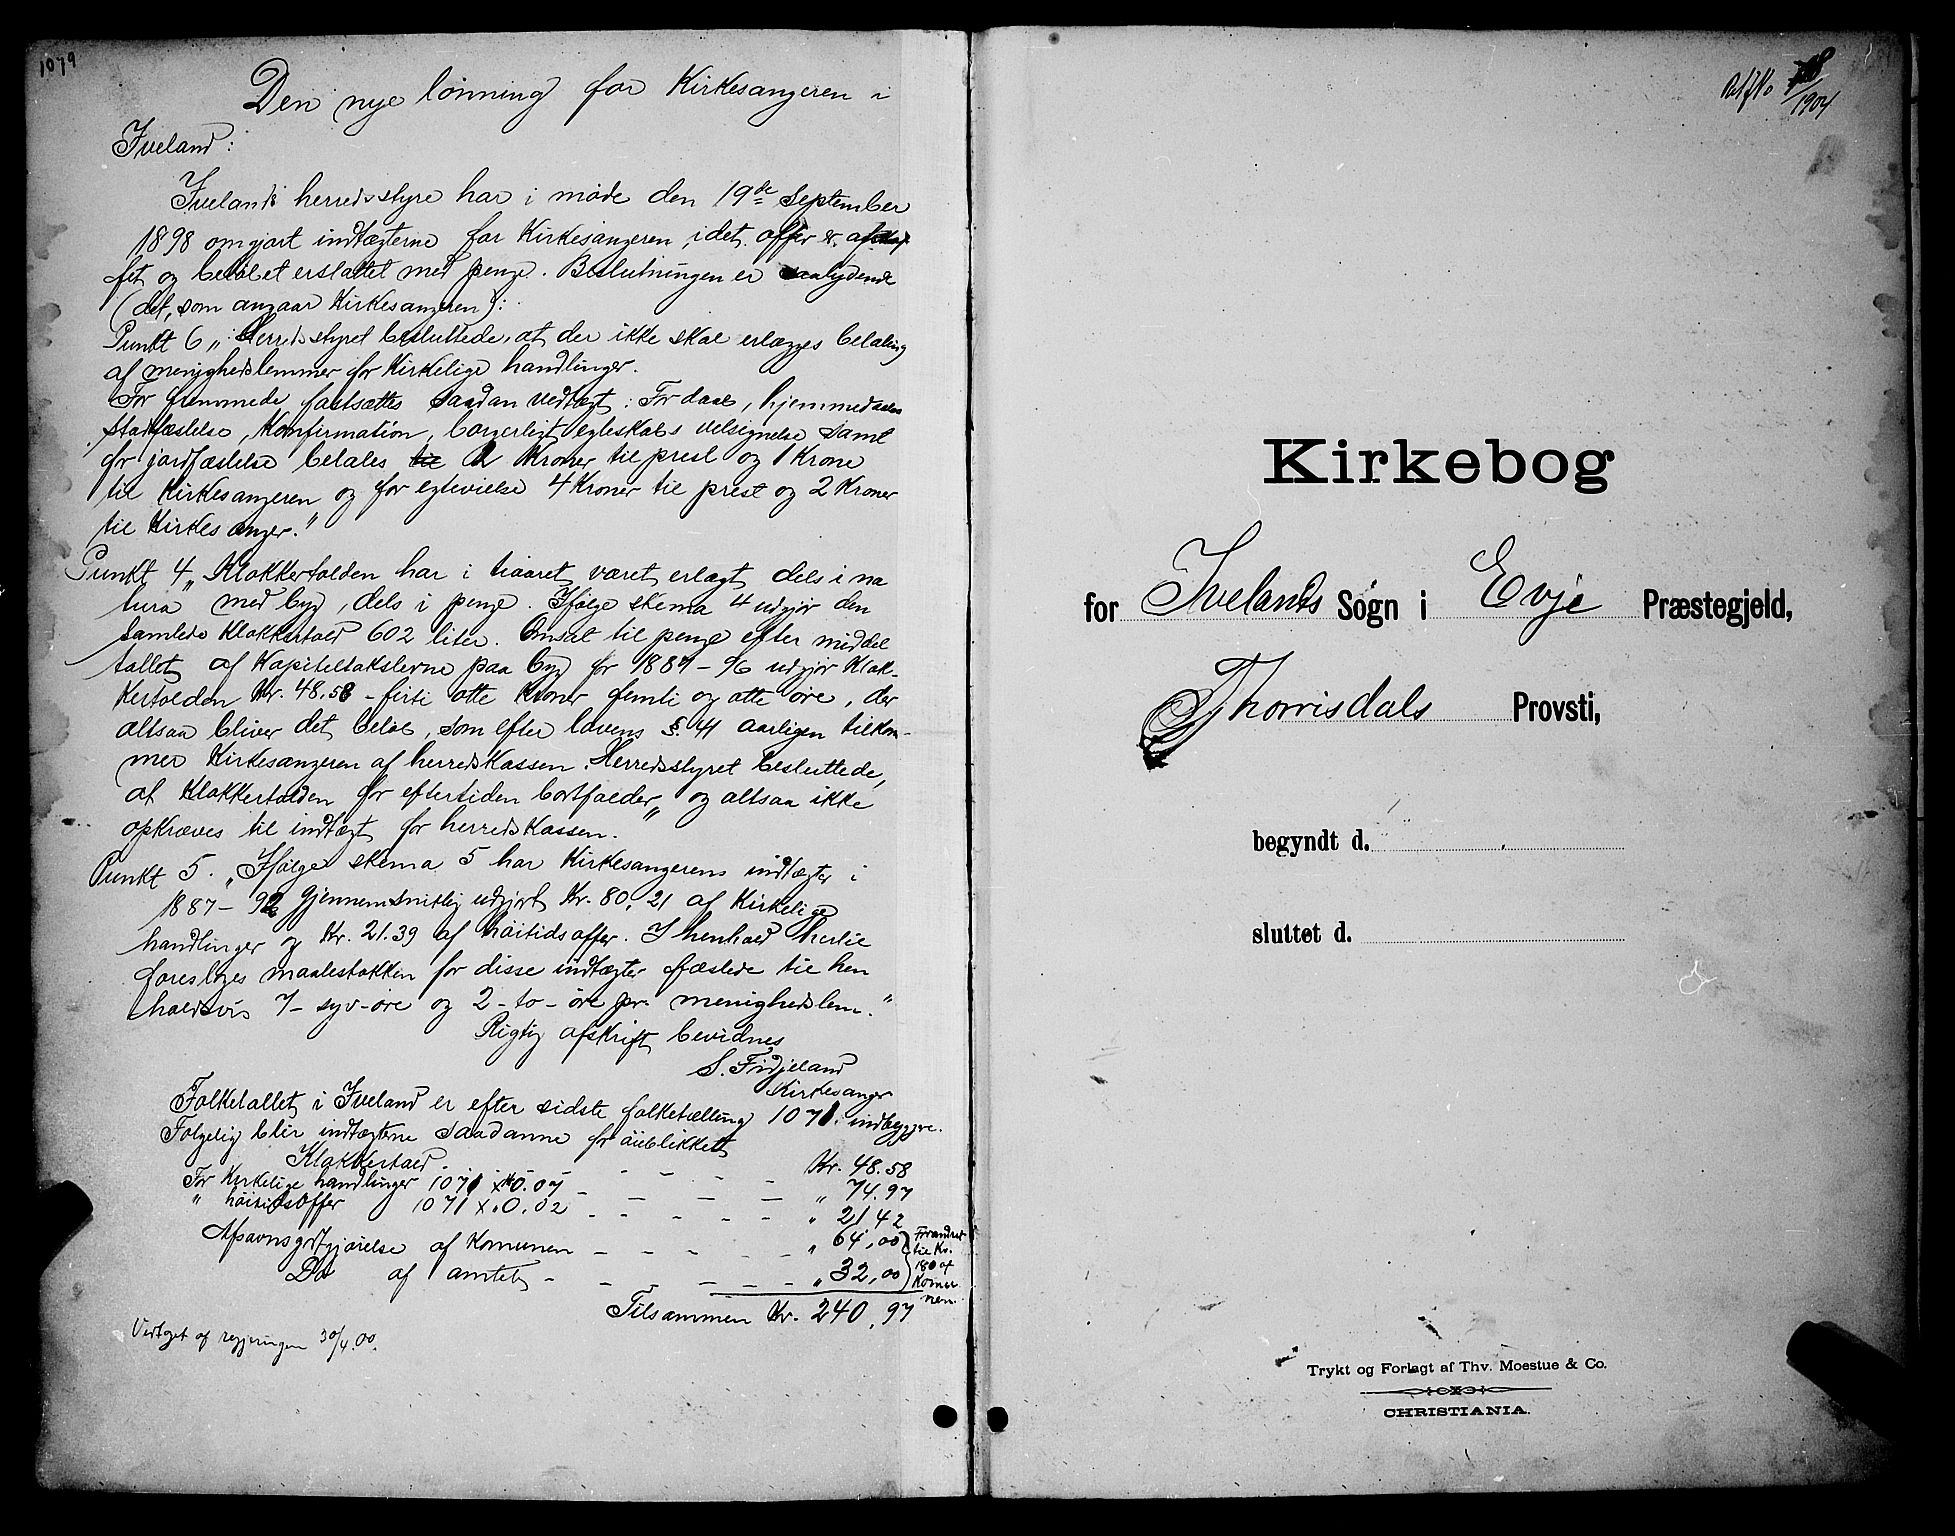 1079
Den nye lønning for Kirkesangeren i
Iveland:
Ivelands herredsstyre har i møde den 19de September
1898 omgjort indtægterne for Kirkesangeren, idet offer er afskaf-
fet og beløbet erstattet med penge. Beslutningen er saalydende
(det, som angaar Kirkesangeren):
Punkt 6 „Herredsstyret besluttede, at der ikke skal erlægges betaling
af menighedslemmer for Kirkelige handlinger.
For fremmede fastsættes saadan vedtægt: For daab, hjemmedaabs
stadfæstelse, Konfirmation, borgerligt egteskabs velsignelse samt
for jordfæstelse betales til 2 Kroner til prest og 1 Krone
til Kirkesangeren og for egtevielse 4 Kroner til prest og 2 Kroner
til Kirkesanger."
Punkt 4 „Klokkertolden har i tiaaret været erlagt dels i na
tura med byg, dels i penge. Ifølge skema 4 udgjør den
samlede Klokkertold 602 liter. Omsat til penge efter middel
tallet af Kapitelstaksterne paa byg for 1887-96 udgjør Klok-
kertolden Kr. 48.58 - firti otte Kroner femti og otte øre, der
altsaa bliver det beløb, som efter lovens §. 41 aarligen tilkom-
mer Kirkesangeren af herredskassen. Herredsstyret besluttede,
at Klokkertolden for eftertiden bortfalder„ og altsaa ikke
opkræves til indtægt for herredskassen.
Punkt 5. „Ifølge skema 5 har Kirkesangerens indtægter i
1887- 96 gjennemsnitlig udgjort Kr. 80,21 af Kirkelige
handlinger og Kr. 21.39 af høitidsoffer. I henhold hertil
foresløges maalestokken for disse indtægter fæstede til hen
holdsvis 7- syv-øre og 2-to-øre pr. menighedslem."
Rigtig afskrift bevidnes
S. Fridjeland
Kirkesanger
Folketallet i Iveland er efter sidste folketælling 1071 indbyggere.
Følgelig blir indtægterne saadanne for øieblikket
Klokkertold - - - - Kr. 48.58
For Kirkelige handlinger 1071 x 0.07 - - - - „ 74.97
" høitidsoffer 1071 x 0.02 - - - - - „ 21 42
Afsavnsgodtgjørelse af Komunen - - - - - „ 64,00
Do af amtet - - - - - - „ 32,00
Forandret
til Kr.
180 af
Komu
nen.
Tilsammen Kr. 240,97
Vedtaget af regjeringen 30/4.00.
1904
Kirkebog
for Ivelands Sogn i Evje Præstegjeld,
Thorrisdals Provsti,
begyndt d.
sluttet d.
Trykt og Forlagt af Thv. Moestue & Co.
CHRISTIANIA.